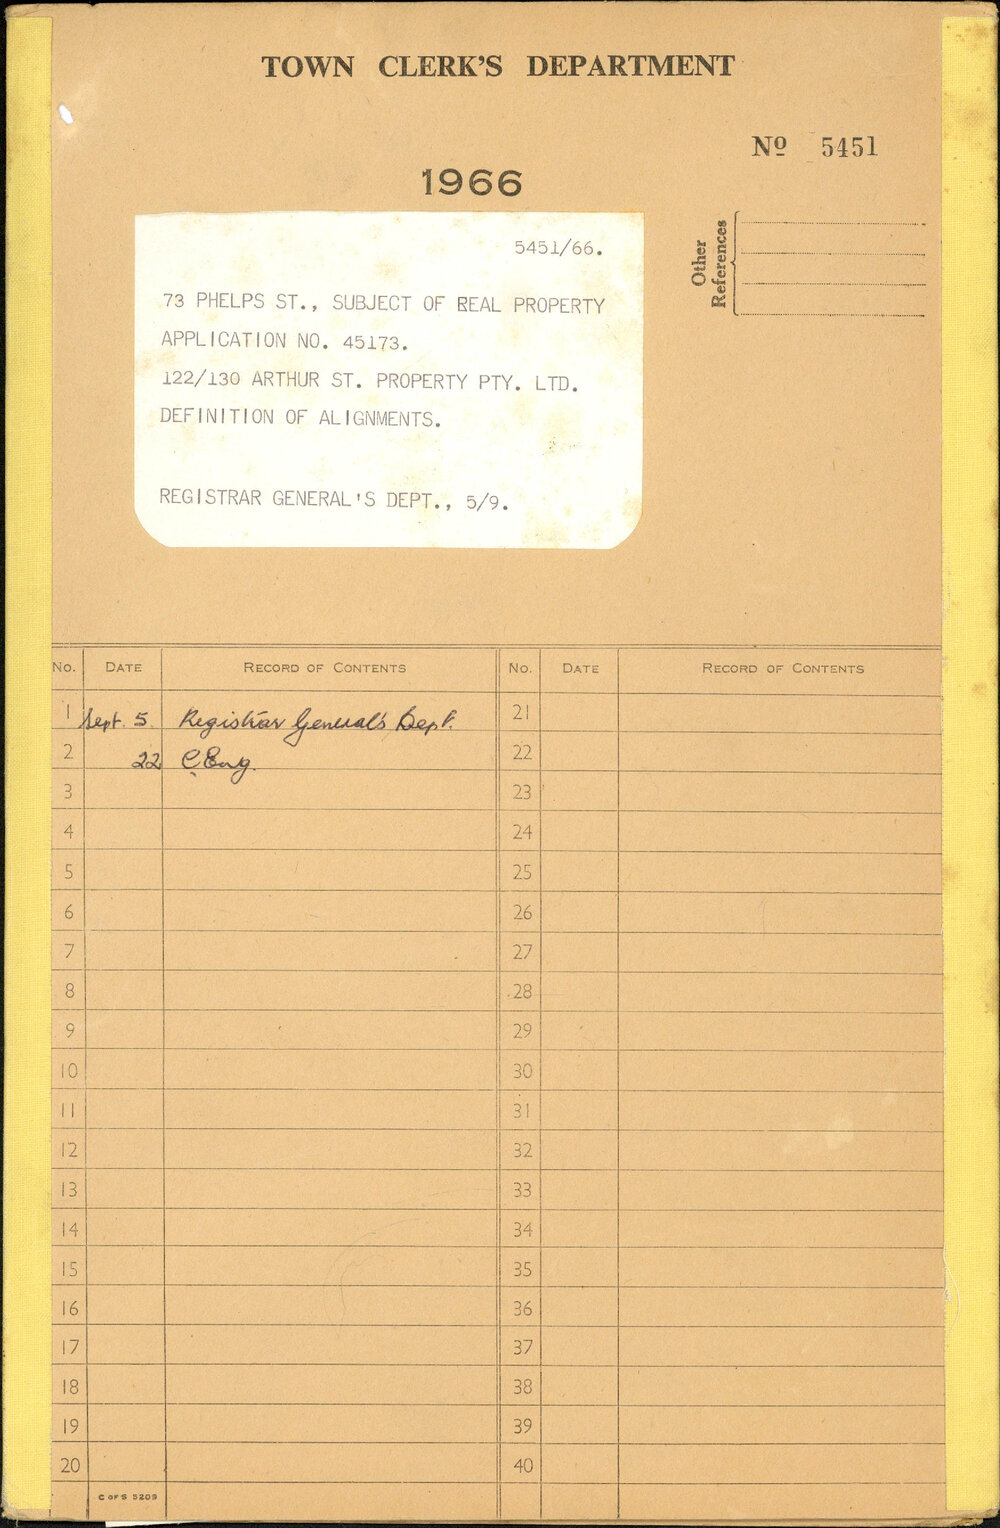 TOWN CLERK'S DEPARTMENT
Nº 5451
1966
Other References
5451/66.
73 PHELPS ST., SUBJECT OF REAL PROPERTY
APPLICATION NO. 45173.
122/130 ARTHUR ST. PROPERTY PTY. LTD.
DEFINITION OF ALIGNMENTS.
REGISTRAR GENERAL'S DEPT., 5/9.
No. DATE RECORD OF CONTENTS No. DATE RECORD OF CONTENTS
1 Sept. 5. Registrar General's Dept. 21
2 22 C.Eng. 22
3 23
4 24
5 25
6 26
7 27
8 28
9 29
10 30
11 31
12 32
13 33
14 34
15 35
16 36
17 37
18 38
19 39
20 40
C OF S 5209